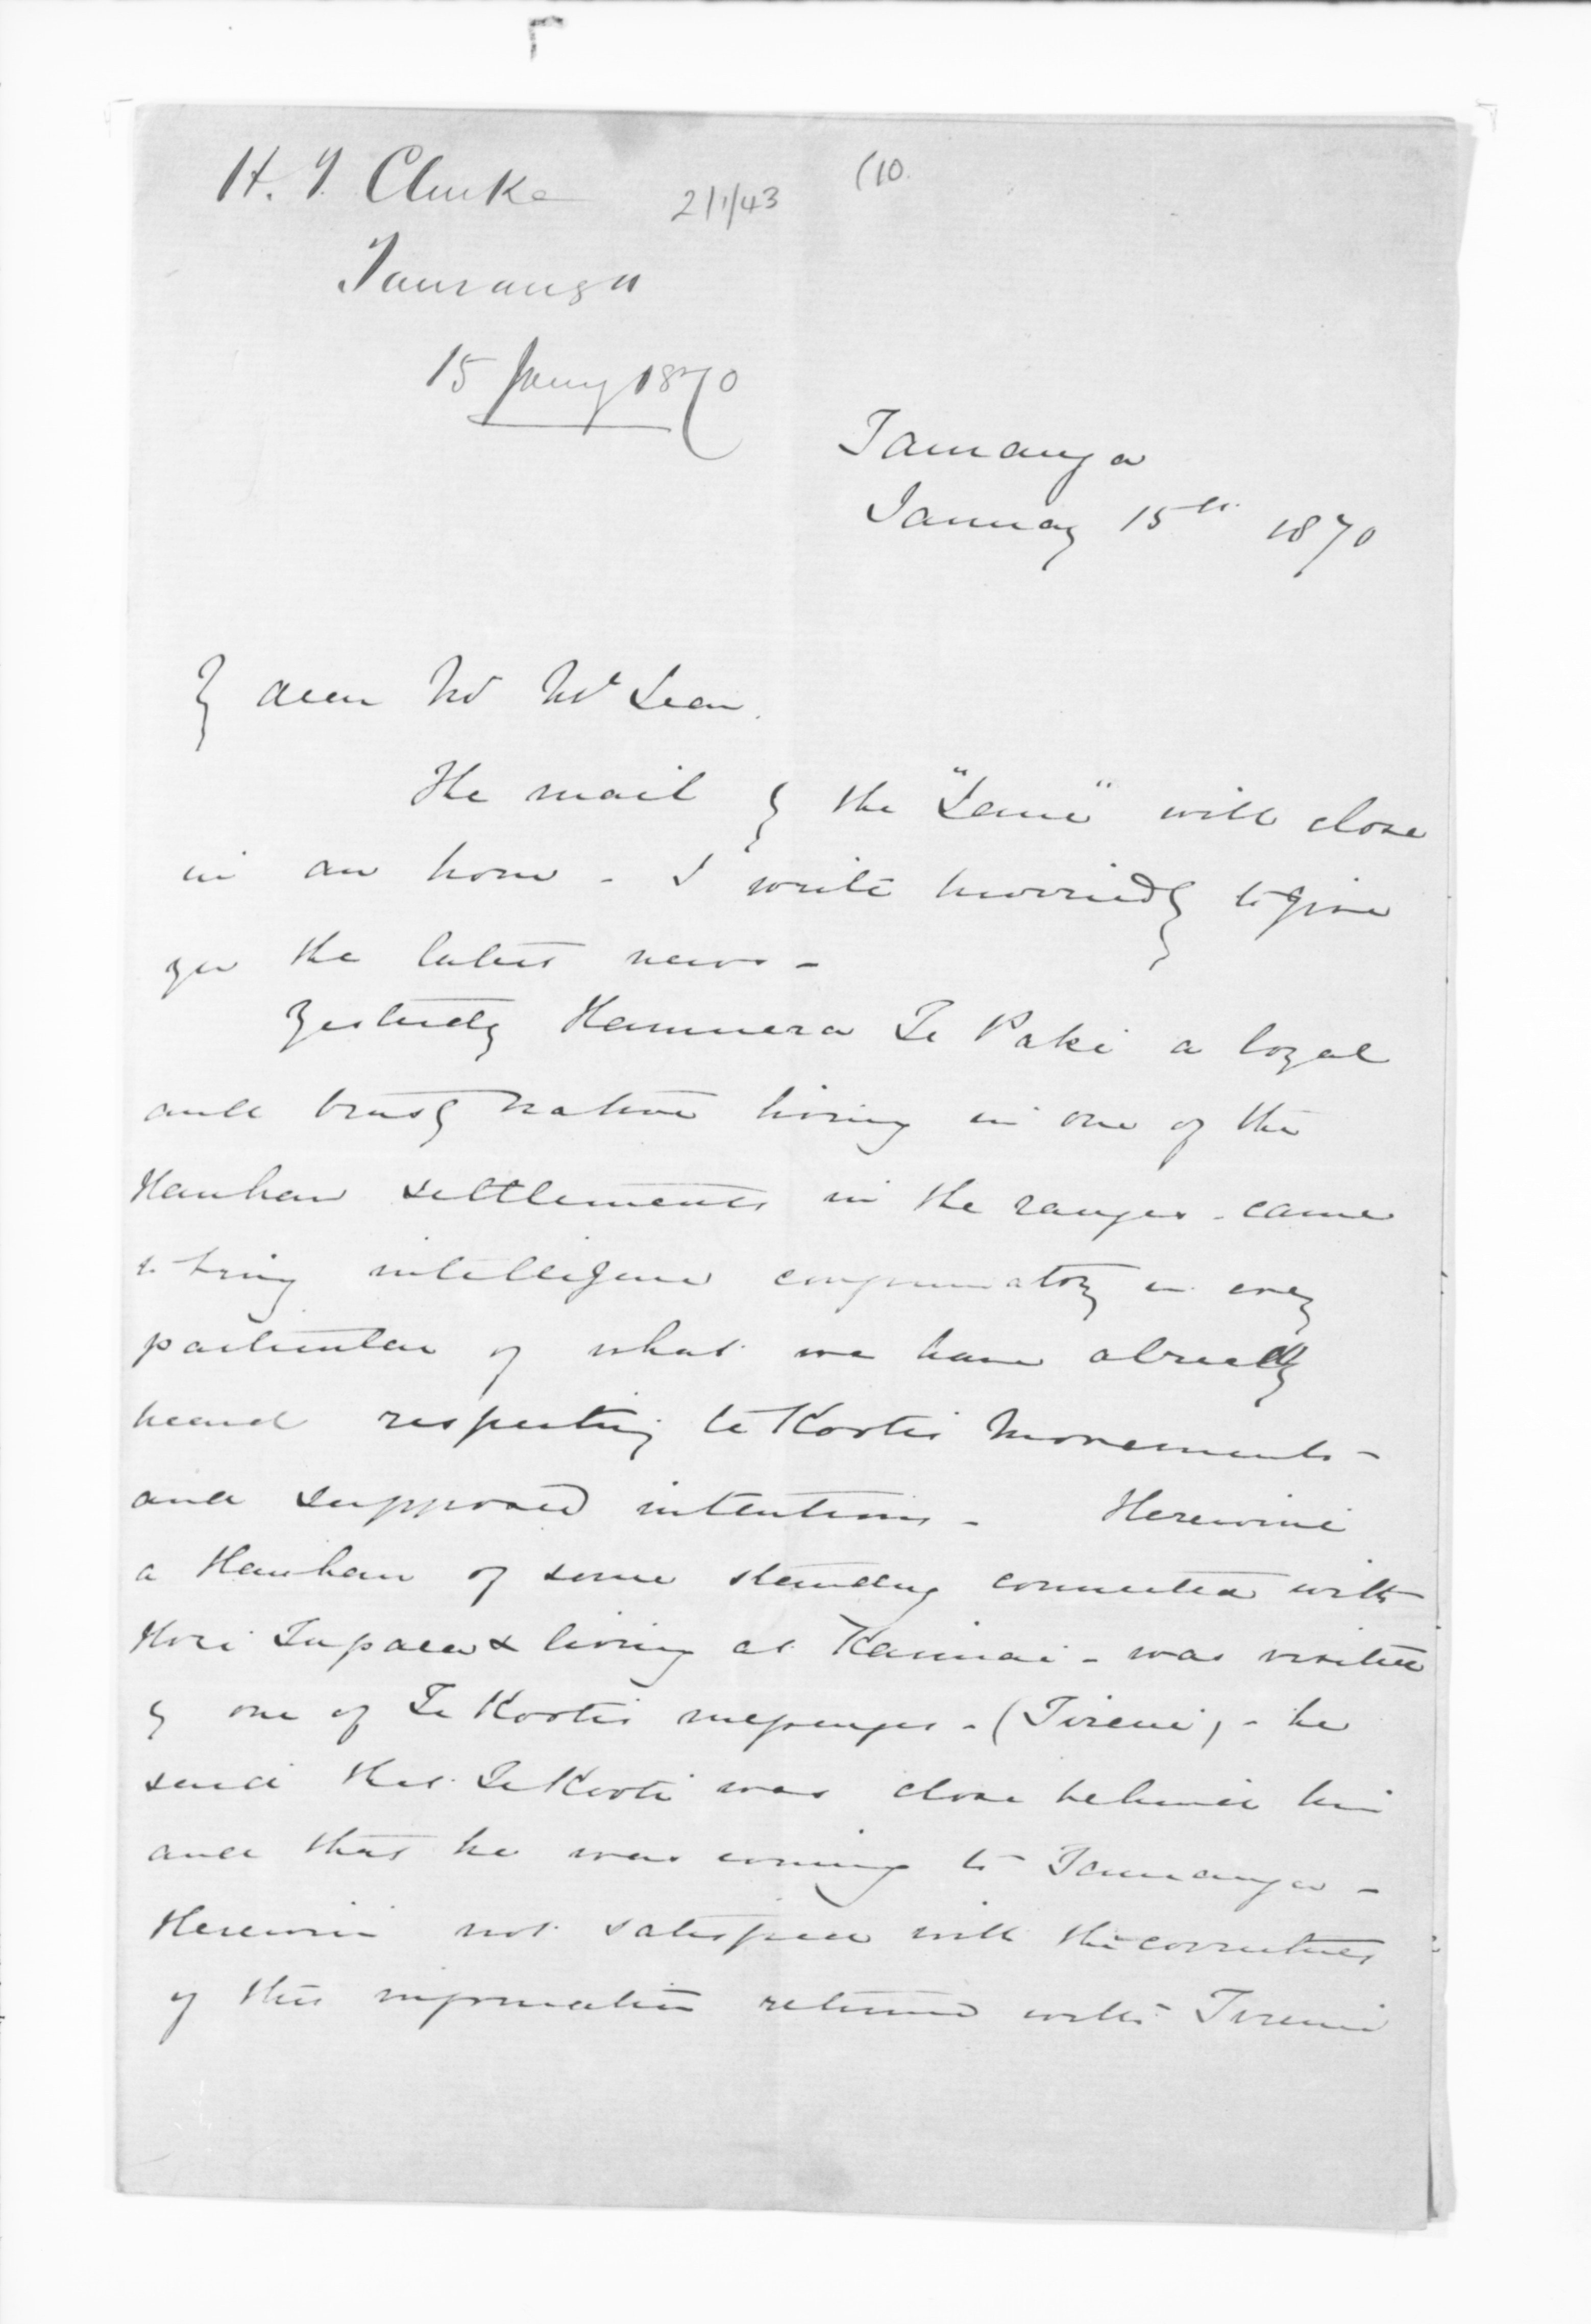 H. T. Clarke
2/1/43
(10.
Tauranga
15 Jany 1870
Tauranga
January 15th 1870
My dear Mr McLean.
The mail by the " " will close
in an hour - I write hurriedly to give
you the latest news -
Yesterday Hamuera Te Paki a loyal
and trusty native living in one of the
Hauhau settlements in the ranges - came
to bring intelligence confirmatory in every
particular of what we have already
heard respecting te Kootis movements -
and supposed intentions - Herewini
a Hauhau of some standing connected with
Hori Tupaea & living at Kaimai - was visited
by one of Te Kootis messengers - (Tireni) - he
said that Te Kooti was close behind him
and that he was coming to Tauranga -
Herewini not satisfied with the correctness
of this information returned with Tireni